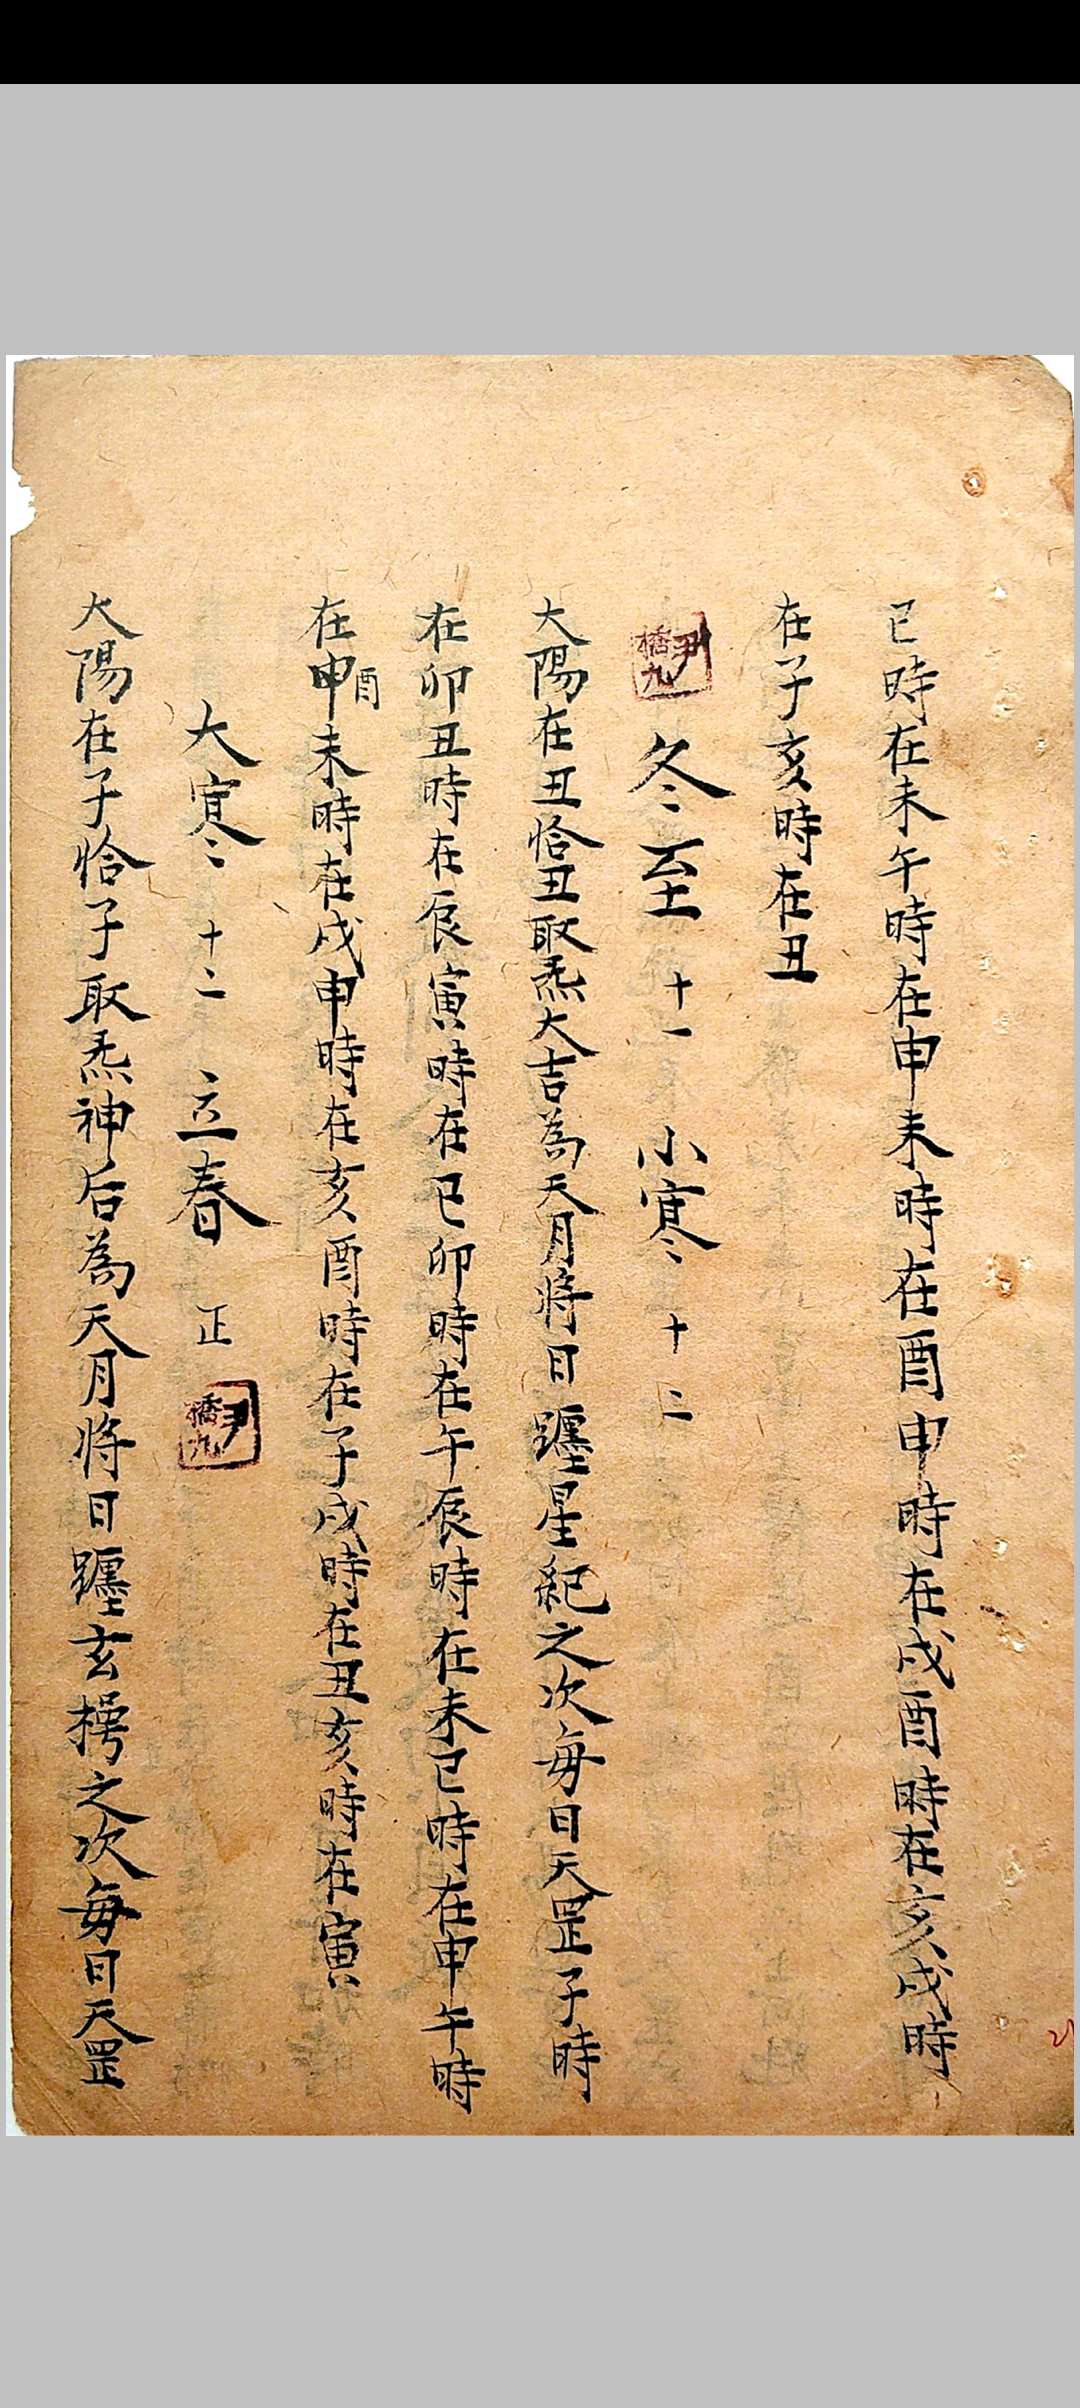 巳時在未午時在申未時在酉申時在戌酉時在亥戌時
在子亥時在丑
尹橋九
冬至 十一 小寒 十二
太陽在丑恰丑取炁大吉為天月将日躔星紀之次每日天罡子時
在卯丑時在辰寅時在巳卯時在午辰時在未巳時在申午時
在申酉未時在戌申時在亥酉時在子戌時在丑亥時在寅
大寒 十二 立春 正
尹橋九
太陽在子恰子取炁神后為天月将日躔玄枵之次每日天罡